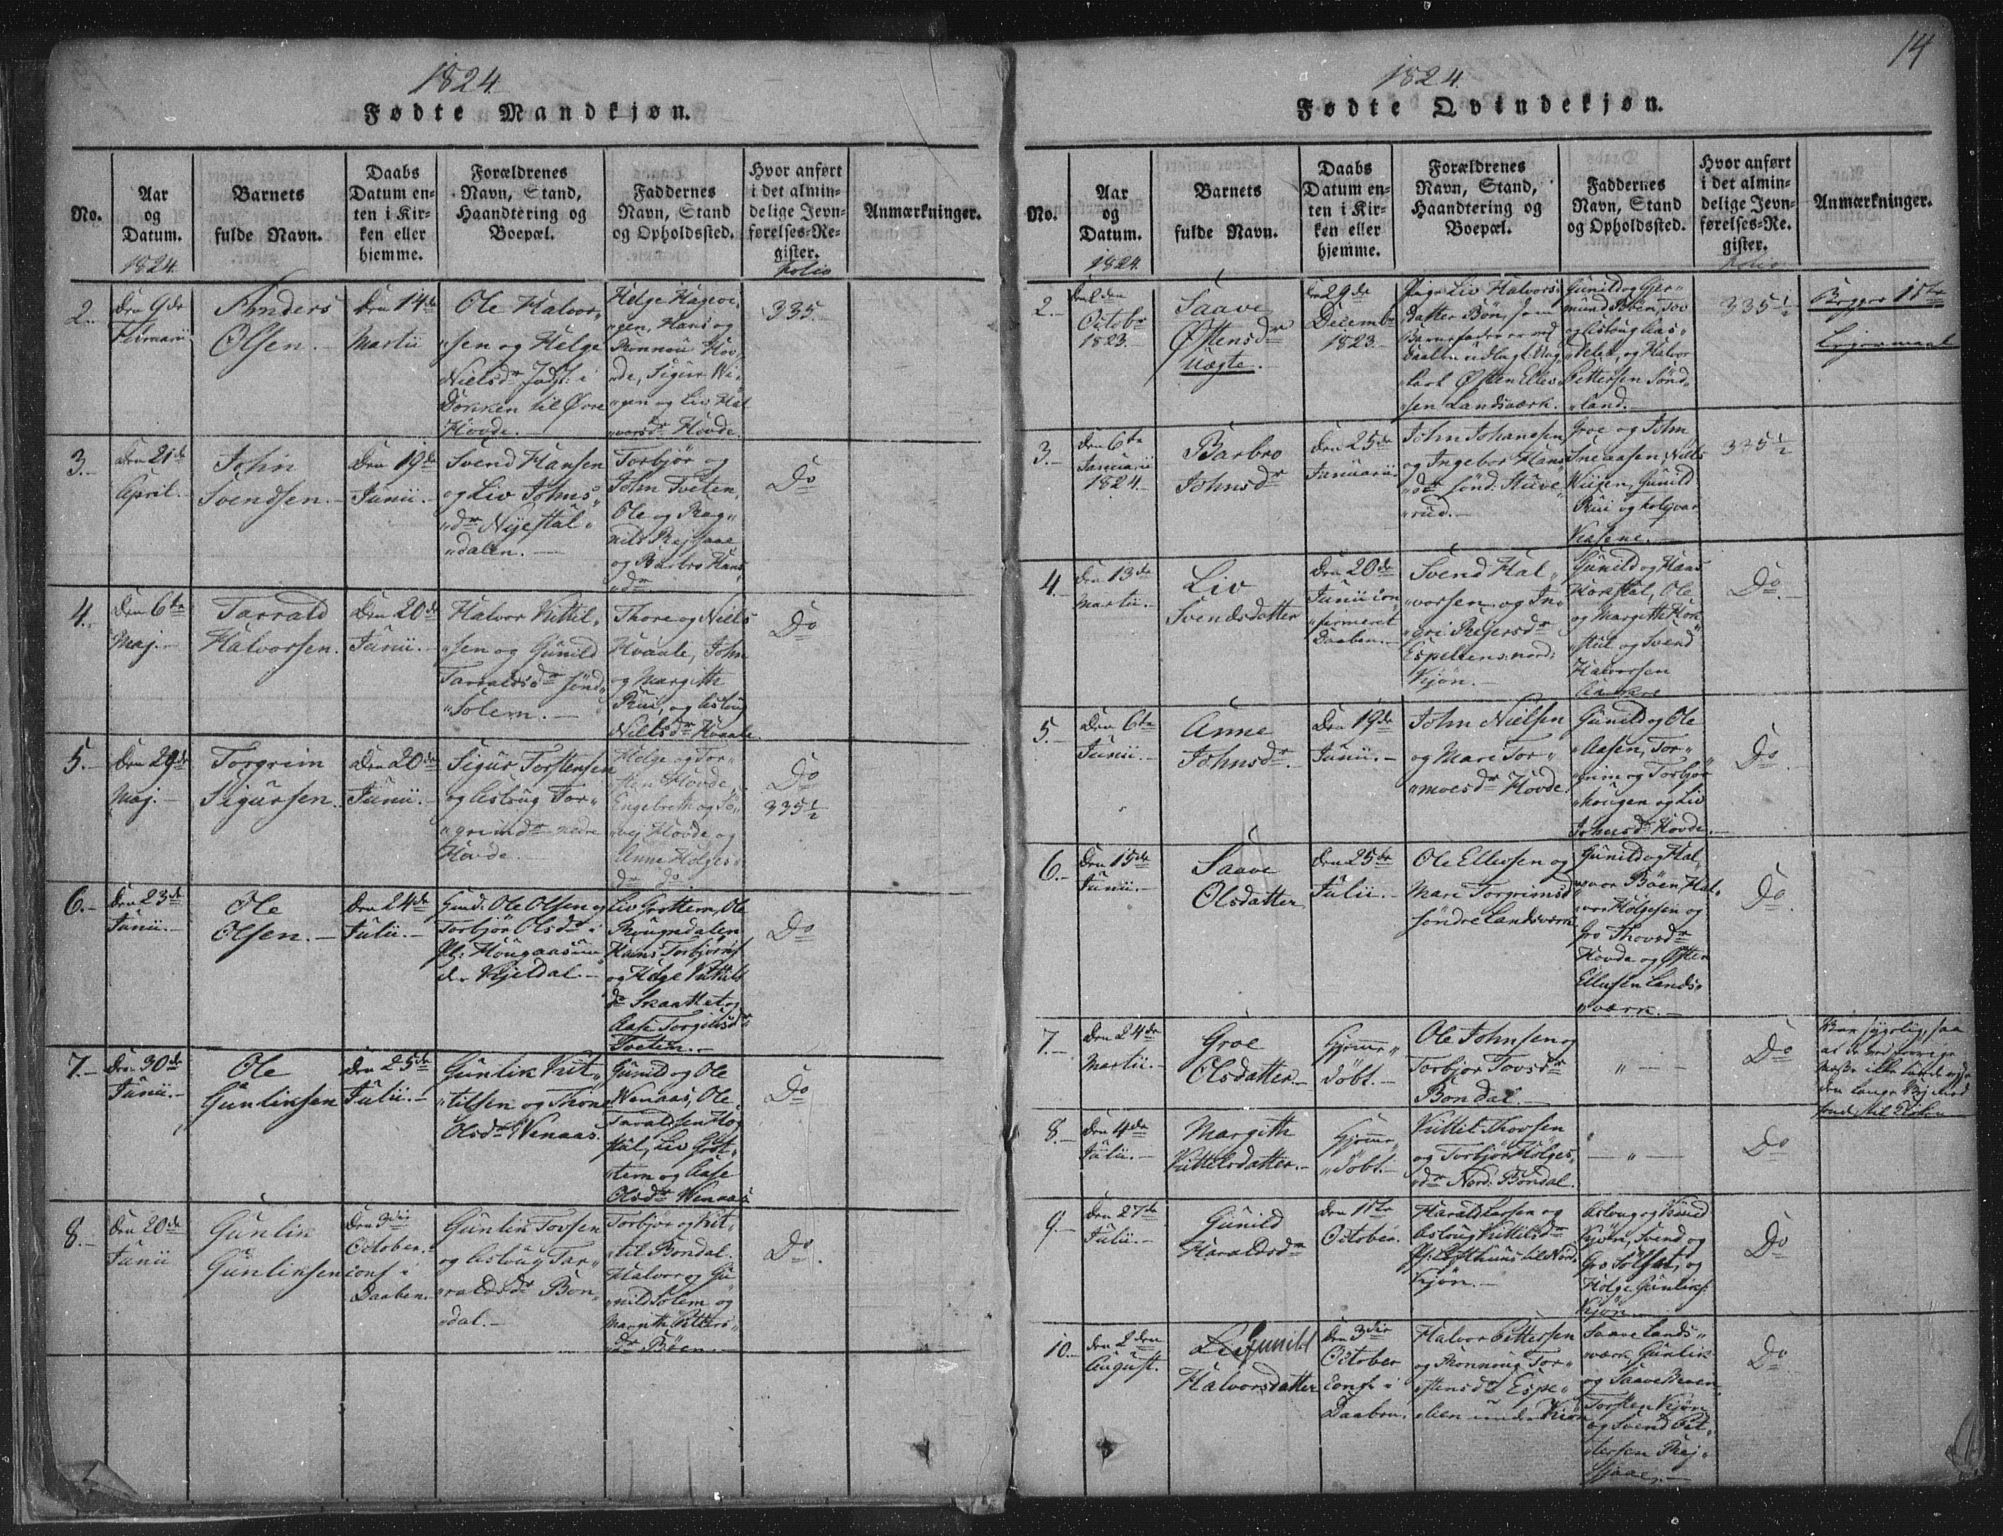 1824.
Fødte Mandkjøn.
No.
Aar
og
Datum.
1824.
Barnets
fulde Navn.
Daabs
Datum en-
ten i Kir-
ken eller
hjemme.
Forældrenes
Navn, Stand,
Haandtering og
Boepæl.
Faddernes
Navn, Stand
og Opholdssted.
Hvor anført
i det almin-
delige Jevn-
førelses-Re-
gister.
Folio
Anmærkninger.
2.
Den 9de
Anders
Olsen.
Den 14de
Martii
Ole Halvor-
sen og Helge
Nielsdr.
Dokken til Øvre
Hovde.
Helge
Hans og
Sigur
og Liv Hal
vorsdr Hovde.
335.
3.
Den 21de
April.
John
Svendsen.
Den 19de
Junii.
Svend Hansen
og Liv Johns
dr Nyestul
dalen.
Torbjør og
John Tveten,
Ole og Rag
nild
og Barbro Hans
dr
Do
4.
Den 6te
Maj.
Tarrald
Halvorsen.
Den 20de
Junii.
Halvor Kittil
sen og Gunild
Tarraldsdr sønd
Solem.
Thore og Niels
Hvaale, John
og Margith
Rui, og Asloug
Nielsdr Hvaale
Do
5.
Den 29de
Maj.
Torgrim
Sigursen.
Den 20de
Junii.
Sigur Torstensen
og Asloug Tor
grimdr nedre
Hovde.
Helge og Tor
sten Hovde,
Engebreth og
Hovde og
Anne Helges
dr do.
Do
335½
6.
Den 23de
Junii.
Ole
Olsen.
Den 24de
Julii.
Ole Olsen og
Torbjør Olsdr i
Pl: Hougaasun
der Kjeldal.
Liv Grottem, Ole
Hans Torbjørns
og Helge Kittils
dr Skaattet og
Aase Torgilsdr
Tveten.
Do
7.
Den 30de
Junii.
Ole
Gunliksen
Den 25de
Julii.
Gunlik Kit
tilsen og Thone
Olsdr Wenaas.
Gunild og Ole
Wenaas, Ole
Taraldsen
Liv Grot
tem og Aase
Olsdr Wenaas.
Do
8.
Den 20de
Junii
Gunlik
Gunliksen
Den 3die
October.
conf i
Daaben.
Gunlik Tovsen
og Aslaug Tar
raldsdr Bon
dal.
Torbjør og Kit
til Bondal.
Halvor og Gu
nild Solem og
Margith Pitters
dr Bøen.
Do.
14
1824.
Fødte Qvindekjøn.
No.
Aar
og
Datum.
1824.
Barnets
fulde Navn.
Daabs
Datum en-
ten i Kir-
ken eller
hjemme.
Forældrenes
Navn, Stand,
Haandtering og
Boepæl.
Faddernes
Navn, Stand
og Opholdssted.
Hvor anført
i det almin-
delige Jevn-
førelses-Re-
gister.
Folio
Anmærkninger.
2.
Den 2den
Octobr
1823.
Saave
Østensdr
Uægte.
Den 29de
Decembr
1823
Pige Liv Halvors
datter Bøn, som
Barnefader er ved
Daaben udlagt Ung
karl Østen Ellev
sen Landsværk.
Gunild og Ger
mund Bøen, Tov
og Aslaug
og Halvor
Pettersen Sønd
land.
335½
Begges 1ste
Leiermaal
3.
Den 6te
Januarii
1824.
Barbro
Johnsdr
Den 25de
Januarii.
John Johansen
og Ingebor Hans
dr sønd: Stuve
rud.
Groe og John
Sneaasen, Niels
Wiigen, Gunild
Rui og Holqvar
335½
4.
Den 13de
Martii.
Liv
Svendsdatter
Den 20de
Junii con
firmeret
Daaben.
Svend Hal
vorsen og In
gri Rejersdr
Espeliens nord:
Kjøn.
Gunild og Hans
Ole
og Margith
og Svend
Halvorsen
Do.
5.
Den 6te
Junii.
Anne
Johnsdr.
Den 19de
Junii.
John Nielsen
og Mari Tor
moesdr Hovde.
Gunild og Ole
Aasen, Tor
grim og Torbjør
Hougen og Liv
Johnsdr Hovde.
Do
6.
Den 15de
Junii.
Saave
Olsdatter
Den 25de
Julii.
Ole Ellevsen og
Mari Torgrimsd
søndre Landsværk
Gunild og Hal
vor Bøen, Hal
vor Helgesen og
Gro Thovsdr
Hovde og Østen
Ellevsen Lands
værk.
Do.
7.
Den 24de
Martii.
Groe
Olsdatter.
Hjemme
døbt.
Ole Johnsen og
Torbjør Tovsdr
Bondal.
Do
Var sygelig, saa
den lange Vej
til Kirken
8.
Den 4de
Julii.
Margith
Kittelsdatter.
Hjemme
døbt.
Kittil Thovsen
og Torbjør Helges
dr Nord: Bondal.
Do
9.
Den 27de
Julii.
Gunild
Haraldsdr
Den 11te
October.
Harald Larsen og
Aslaug Kittilsdr
Pl: Lofthuus til Nord
Kjøn.
Aslaug og Knud
Kjøn, Svend og
Gro Solstad og
Helge Gunliks:
Kjøn.
Do
10.
Den 2den
August.
Gunild
Halvorsdatter
Den 3die
October
conf i
Daaben.
Halvor Pettersen
og Rønnoug Tor
stensdr Espe
lien under Kiøn
Saave Lands
værk Gunlik
og Saave
Torsten Kjøn
og Svend Pit
tersen Rej
Do